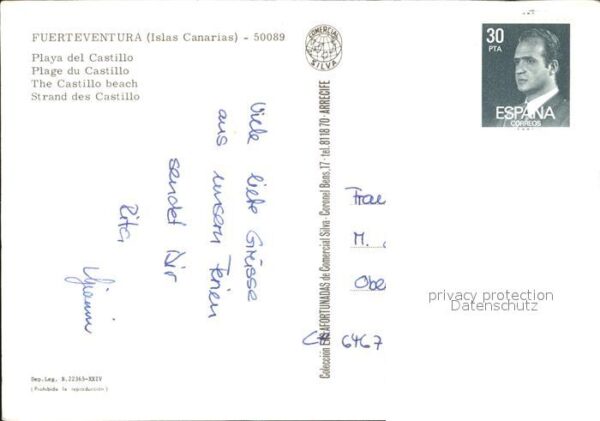 FUERTEVENTURA (Islas Canarias) - 50089
Playa del Castillo
Plage du Castillo
The Castillo beach
Strand des Castillo
COMERCIAL
SILVA
30
PTA
ESPAÑA
CORREOS
Viele liebe Grüsse
aus unsern Ferien
sendet Dir
Rita
Colección ISLAS AFORTUNADAS de Comercial Silva - Coronel Bens, 17 - tel. 81 18 70 - ARRECIFE
Frau
M.
Obe
CH 6467
privacy protection
Datenschutz
Dep. Leg. B. 22365-XXIV
(Prohibida la reproducción)